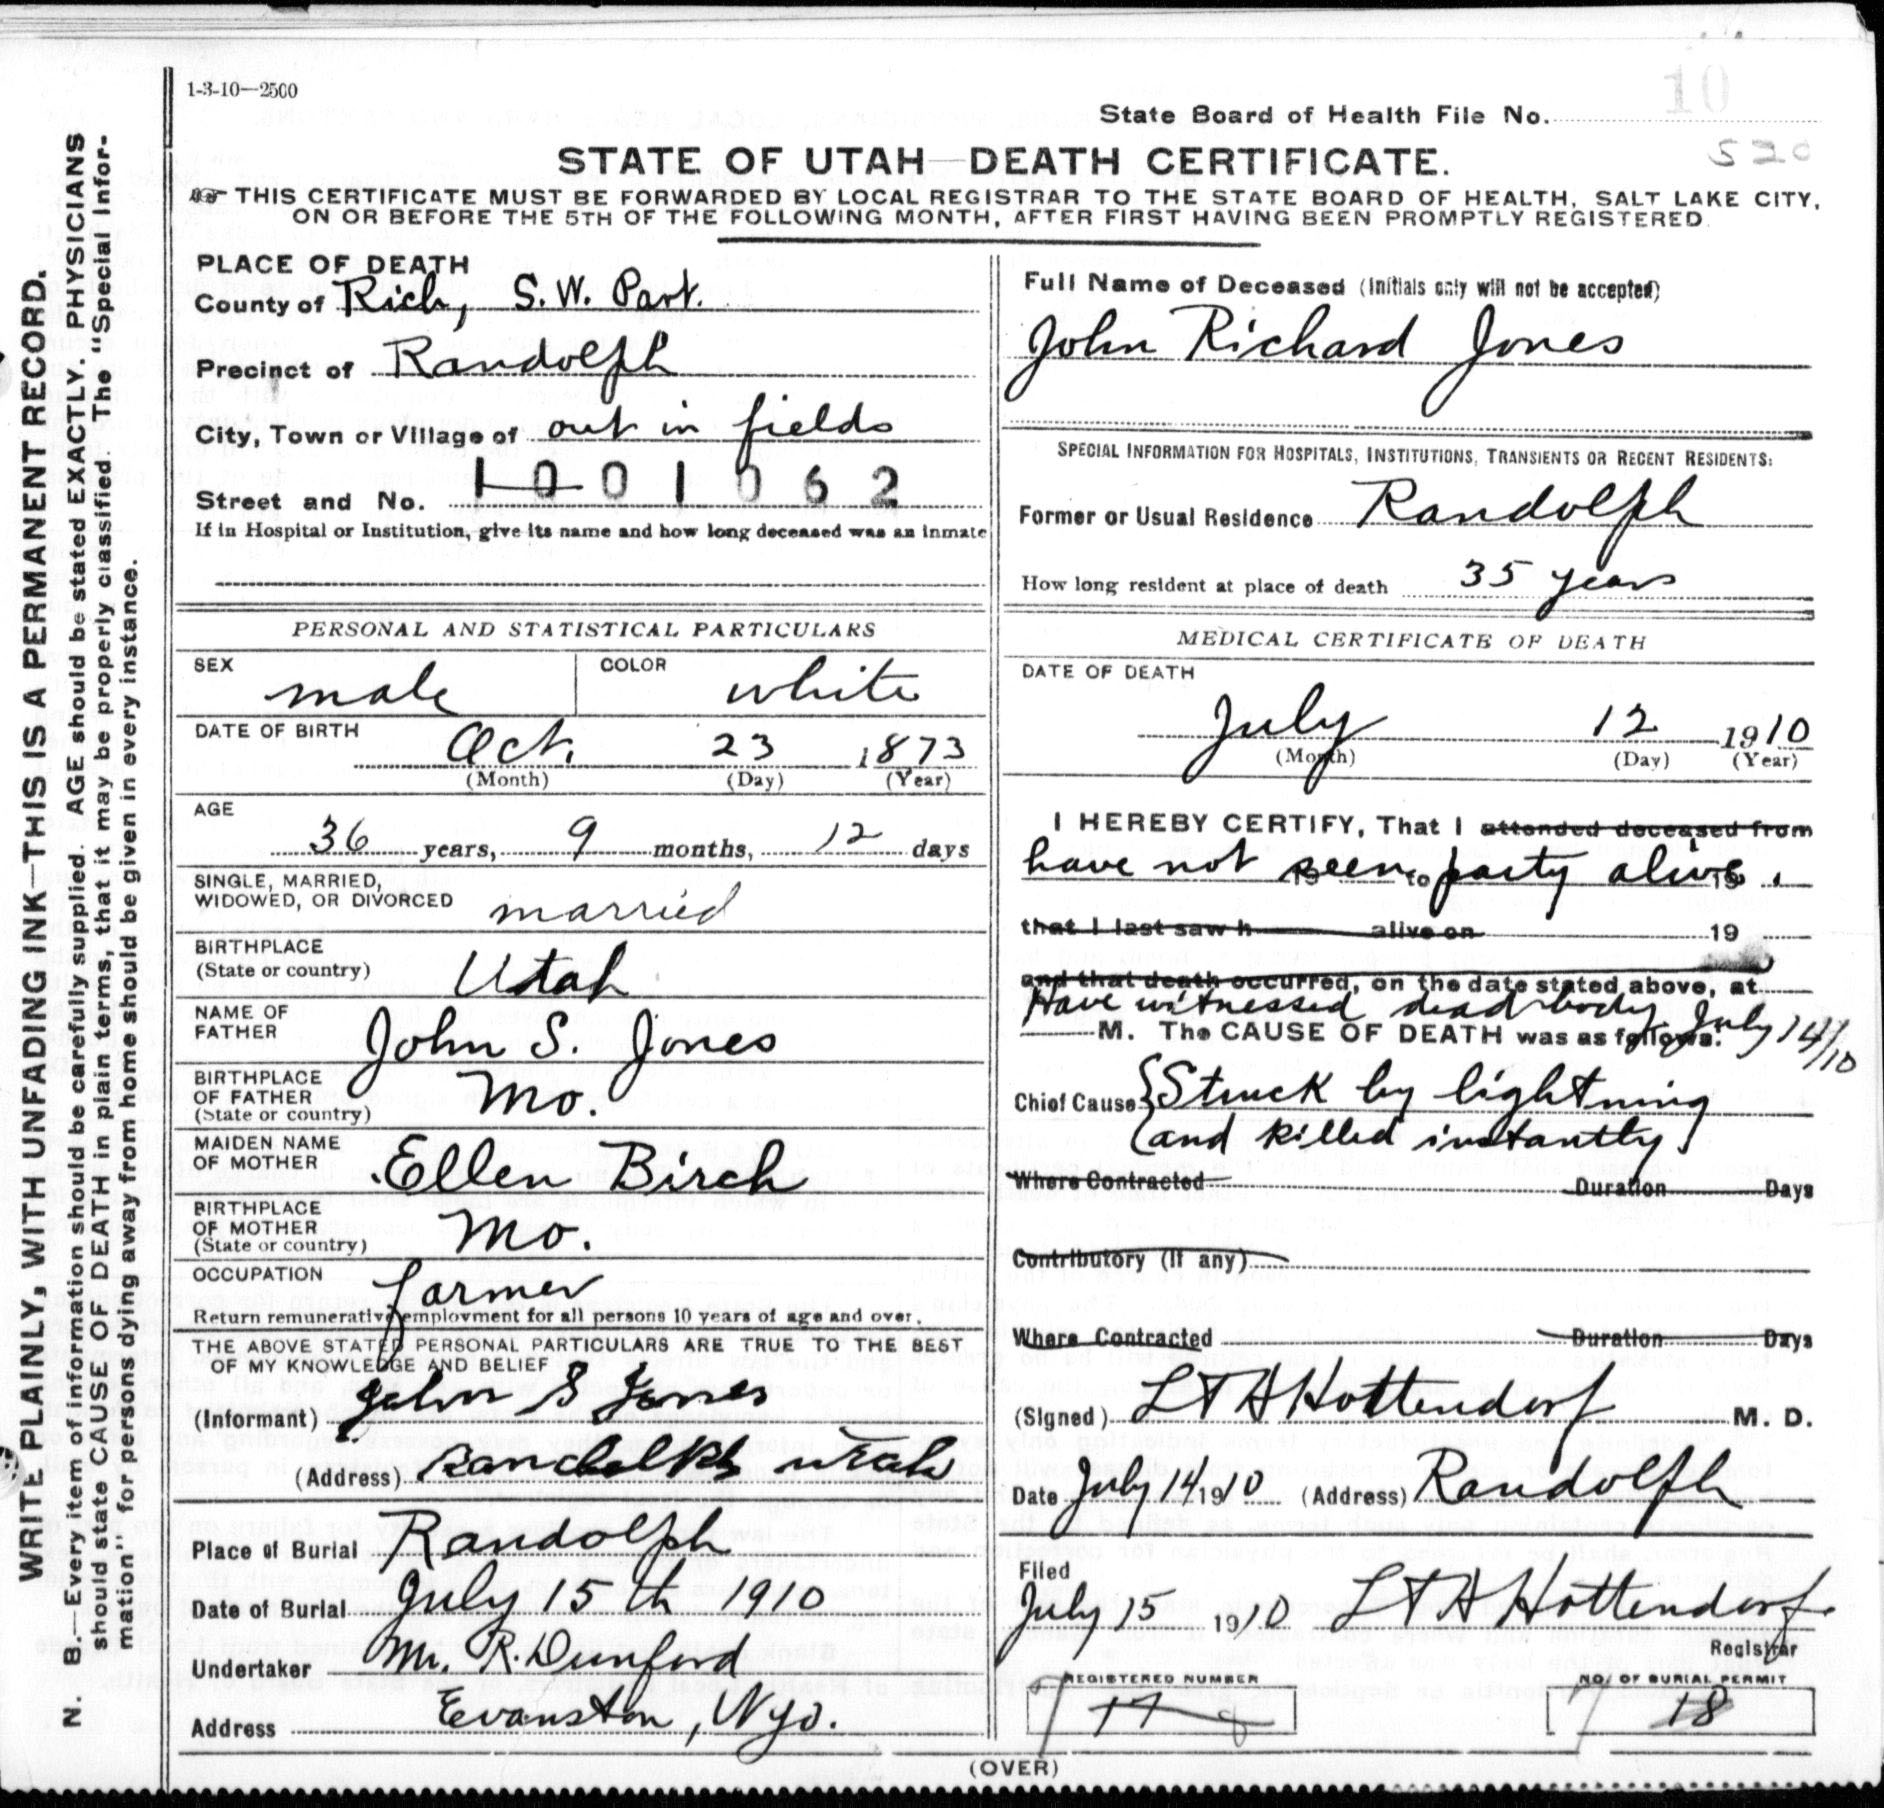 1-3-10—2500
State Board of Health File No. 10
520
STATE OF UTAH—DEATH CERTIFICATE.
☞ THIS CERTIFICATE MUST BE FORWARDED BY LOCAL REGISTRAR TO THE STATE BOARD OF HEALTH, SALT LAKE CITY,
ON OR BEFORE THE 5TH OF THE FOLLOWING MONTH, AFTER FIRST HAVING BEEN PROMPTLY REGISTERED.
WRITE PLAINLY, WITH UNFADING INK—THIS IS A PERMANENT RECORD.
N. B.—Every item of information should be carefully supplied. AGE should be stated EXACTLY. PHYSICIANS
should state CAUSE OF DEATH in plain terms, that it may be properly classified. The "Special Infor-
mation" for persons dying away from home should be given in every instance.
PLACE OF DEATH
County of Rich, S.W. Part.
Precinct of Randolph
City, Town or Village of out in fields
1001062
Street and No.
If in Hospital or Institution, give its name and how long deceased was an inmate
PERSONAL AND STATISTICAL PARTICULARS
SEX male COLOR white
DATE OF BIRTH Oct. 23 1873
(Month) (Day) (Year)
AGE
36 years, 9 months, 12 days
SINGLE, MARRIED,
WIDOWED, OR DIVORCED married
BIRTHPLACE
(State or country) Utah
NAME OF
FATHER John S. Jones
BIRTHPLACE
OF FATHER Mo.
(State or country)
MAIDEN NAME
OF MOTHER Ellen Birch
BIRTHPLACE
OF MOTHER Mo.
(State or country)
OCCUPATION farmer
Return remunerative employment for all persons 10 years of age and over.
THE ABOVE STATED PERSONAL PARTICULARS ARE TRUE TO THE BEST
OF MY KNOWLEDGE AND BELIEF
(Informant) John S Jones
(Address) Randolph Utah
Place of Burial Randolph
Date of Burial July 15th 1910
Undertaker Mr. R. Dunford
Address Evanston, Wyo.
Full Name of Deceased (Initials only will not be accepted)
John Richard Jones
SPECIAL INFORMATION FOR HOSPITALS, INSTITUTIONS, TRANSIENTS OR RECENT RESIDENTS:
Former or Usual Residence Randolph
How long resident at place of death 35 years
MEDICAL CERTIFICATE OF DEATH
DATE OF DEATH
July 12 1910
(Month) (Day) (Year)
I HEREBY CERTIFY, That I attended deceased from
have not seen party alive.
19 to 19
that I last saw h alive on 19
and that death occurred, on the date stated above, at
Have witnessed dead body July 14/10
M. The CAUSE OF DEATH was as follows:
Chief Cause {Struck by lightning
(and killed instantly)
Where Contracted Duration Days
Contributory (If any)
Where Contracted Duration Days
(Signed) L T H Hottendorf M. D.
Date July 14 1910 (Address) Randolph
Filed
July 15 1910 L T H Hottendorf
Registrar
REGISTERED NUMBER NO. OF BURIAL PERMIT
18
(OVER)